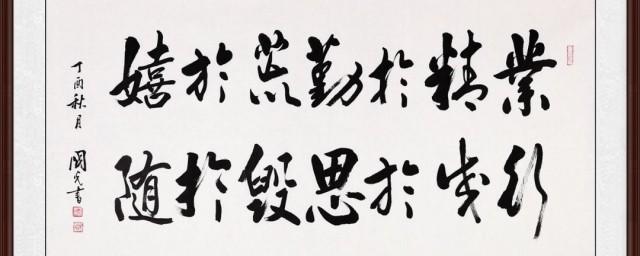 業精於勤荒於嬉
行成於思毁於随
丁酉秋月